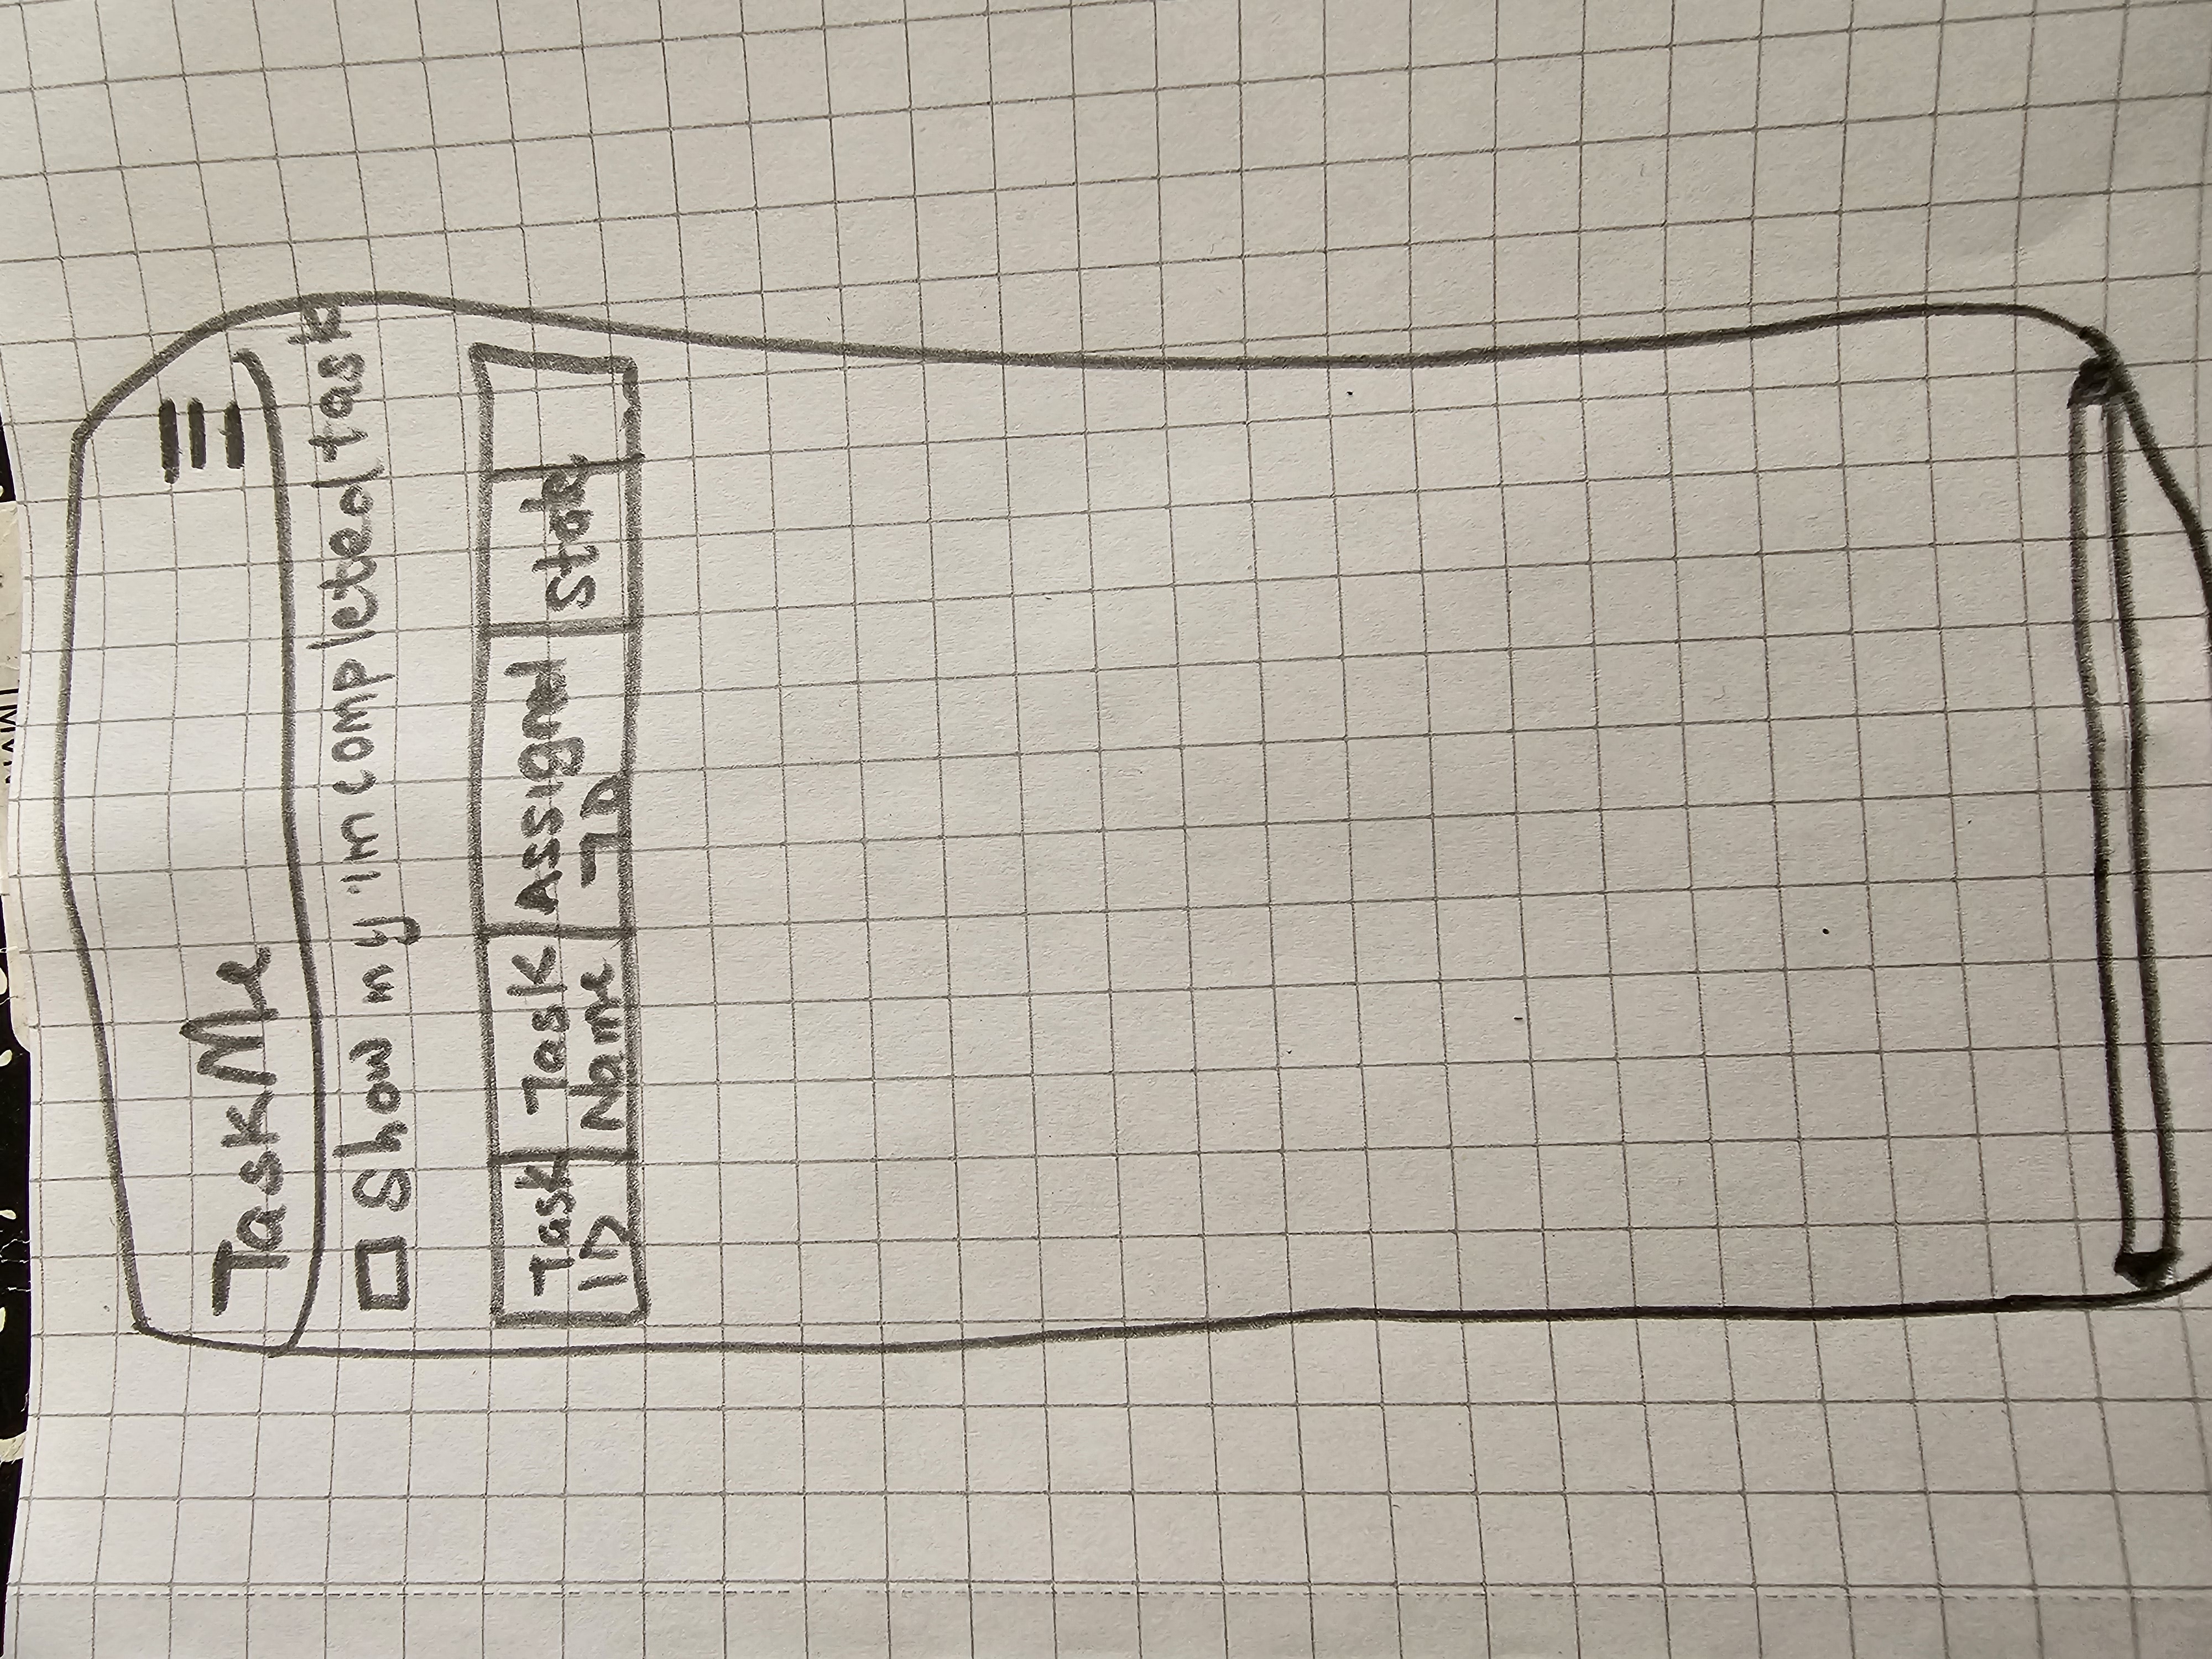 TaskMe
Show my imcompleted task
Task
ID
Task
Name
Assigned
TO
State